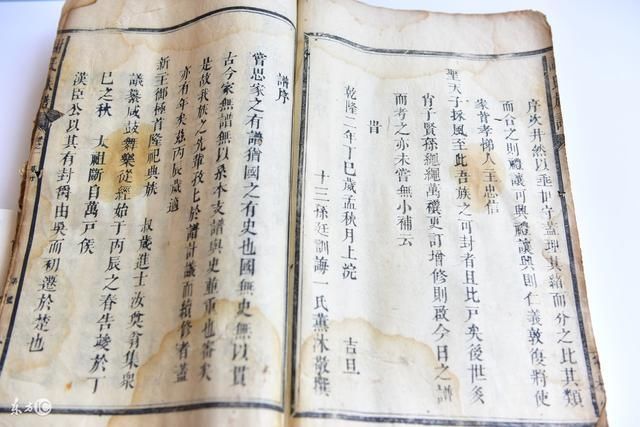 序次井然以垂世守蓋理其緒而分之比其類
而合之則禮讓可興禮讓興則仁義敦復將使
家皆孝梯人人主忠信
聖天子採風至此吾族之可封者且比戸矣後世癸
肯子賢孫繩繩萬禩更訂增修則啟今日之譜
而考之亦未嘗無小補云
旹
乾隆二年丁巳歲孟秋月上浣
吉旦
十三孫廷訓誨一氏薰沐敬撰
譜序
嘗思家之有譜猶國之有史也國無史無以貫
古今家無譜無以泉本支譜與史並重也審矣
是故我族之先輩役上於譜計議而續修者蓋
亦有年矣玆丙辰歲適
新主御極首隆祀典族
叔歲進士汝英翁集眾
議舉咸鼓舞樂從經始于丙辰之春告竣於丁
巳之秋
太祖斷自萬戸侯
漢臣公以其有封爵由吳而初遷於楚也
东方IC